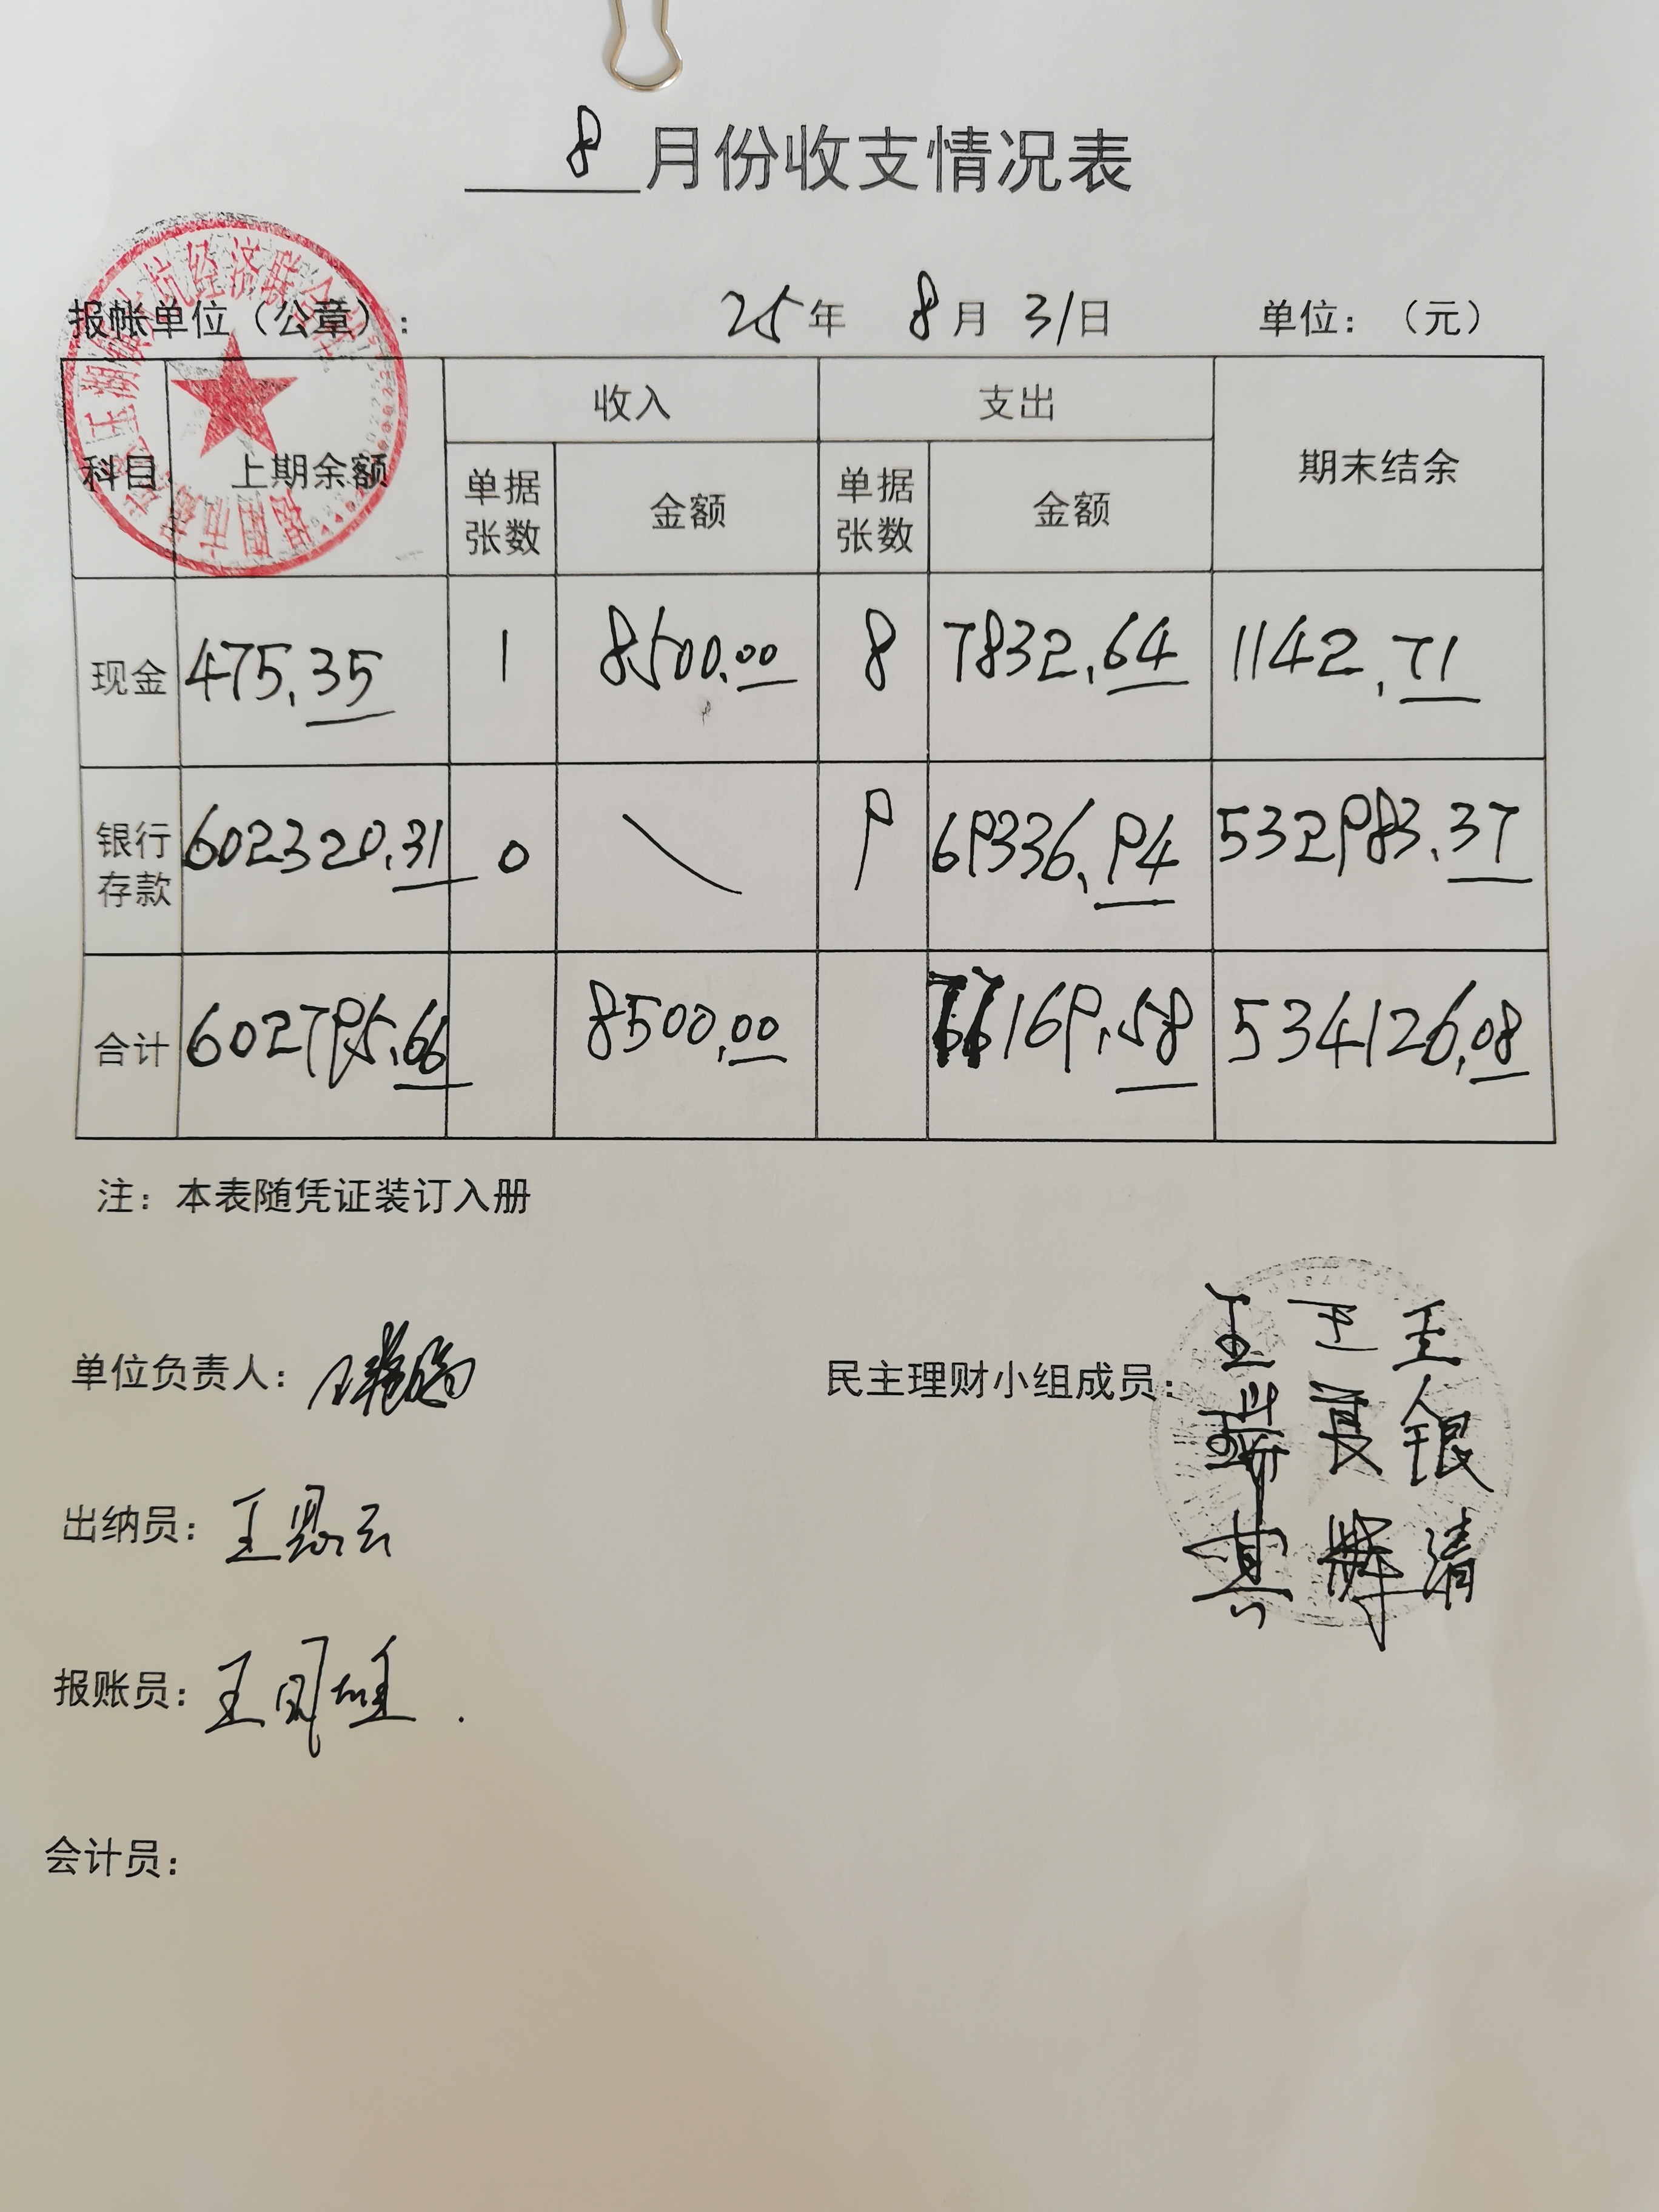 8月份收支情况表
报帐单位（公章）： 25年 8月 31日 单位：（元）
科目 上期余额 收入 支出 期末结余
单据张数 金额 单据张数 金额
现金 475.35 1 8500.00 8 7832.64 1142.71
银行存款 602320.31 0 \ 9 69336.94 532983.37
合计 602795.66 8500.00 77169.58 534126.08
注：本表随凭证装订入册
单位负责人：
民主理财小组成员：王瑞其 王夏辉 王银清
出纳员：王
报账员：王凤雄
会计员：